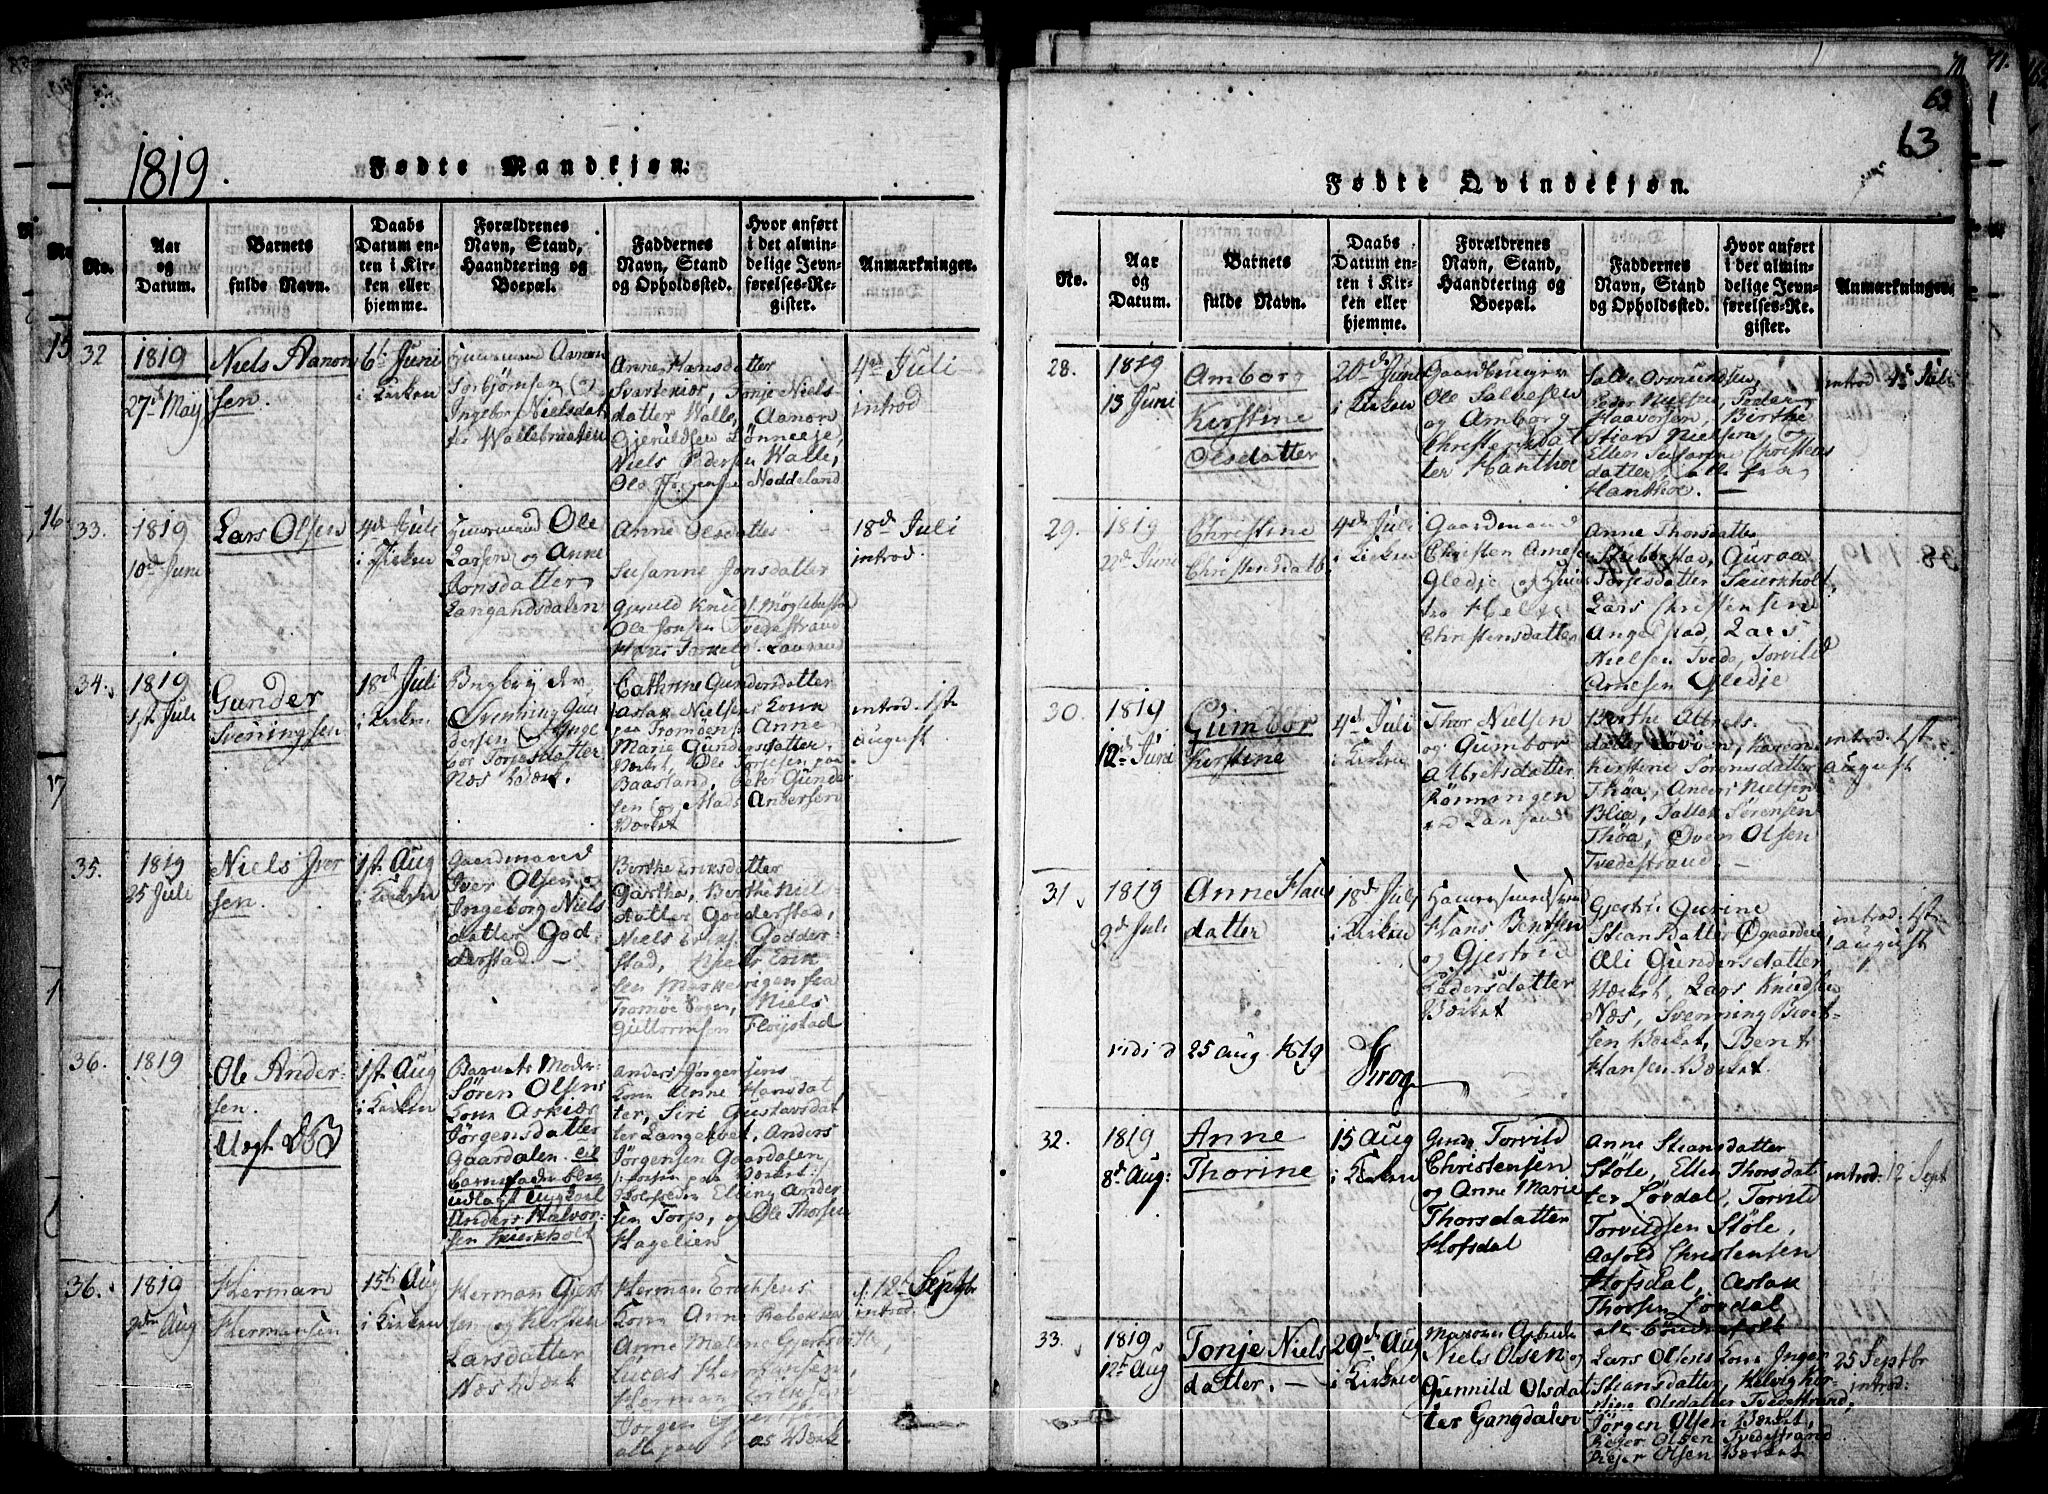 1819.
Fødte Mandkjøn.
No.
Aar
og
Datum.
Barnets
fulde Navn.
Daabs
Datum en-
ten i Kir-
ken eller
hjemme.
Forældrenes
Navn, Stand,
Haandtering og
Boepæl.
Faddernes
Navn, Stand
og Opholdssted.
Hvor anført
i det almin-
delige Jevn-
førelses-Re-
gister.
Anmærkninger.
32
1819
27de May
Niels Aanon
sen.
6te Juni
i Kirken
Huusmand Aanon
Torbjørnsen og
Ingebor Nielsdat
ter Vallebraaten
Anne Hansdatter
Svartekiær, Tonje Niels
datter Valle, Aanon
Gjeruldsen Lønneeje,
Niels Pedersen Valle,
Ole Noddeland
4de Juli
introd
33.
1819
10de Juni
Lars Olsen
4de Juli
i Kirken
Huusmand Ole
Larsen og Anne
Jonsdatter
Langandsdalen
Anne Olsdatter
Susanne Jonsdatter
Gjeruld Knuds. Møglebustad
Ole Jonsen Tvedestrand
Hans
18de Juli
introd.
34.
1819
1st Juli
Gunder
Svenningsen
18de Juli
i Kirken
Svenning Gun
dersen og Inge
bor Torjesdatter
Næs Værk.
Cathrine Gundersdatter
Aslak Nielsens Kone
paa Tromøen Anne
Marie Gundersdatter,
Værket, Ole Torjesen paa
Baasland, Peter Gunder
sen og Mads Andersen
Værket
introd. 1st
August
35.
1819
25 Juli
Niels Iver
sen.
1st Aug
i Kirken
Gaardmand
Iver Olsen og
Ingeborg Niels
datter God-
derstad. –
Berthe Eriksdatter
Gartha, Berthe Niels
datter Godderstad,
Niels Godder-
stad, Niels Erik
sen fra
Tromøe Sogn, Niels
Guttormsen Fløystad
36.
1819
Ole Ander-
sen.
Uægt
1st Aug
i Kirken
Barnets Moder
Søren Olsens
Kone Askier
Jørgensdatter
Gaardalen. til
barnefader blev
udlagt Ungkarl
Anders Halvor-
sen Skierkholt
Anders Jørgensens
Kone Anne Hansdat
ter, Siri Gustavsdat
ter Langekvet, Anders
Jørgensen Gaardalen
Elling Ander
sen Torp, og Ole Thorsen
Hagelien
36.
1819
9de Aug
Herman
Hermansen
15te Aug
i Kirken
Herman Gjert
sen og Kirsten
Larsdatter
Næs Værk
Herman Eriksens
Kone Anne Rebekka
Anne Malene Gjertsdatter,
Lucas Hermansen,
Herman Eriksen
Jørgen Gjertsen
alle paa Næs Værk
d. 12te Septbr
introd.
63
Fødte Qvindekjøn.
No.
Aar
og
Datum.
Barnets
fulde Navn.
Daabs
Datum en-
ten i Kir-
ken eller
hjemme.
Forældrenes
Navn, Stand,
Haandtering og
Boepæl.
Faddernes
Navn, Stand
og Opholdssted.
Hvor anført
i det almin-
delige Jevn-
førelses-Re-
gister.
Anmærkninger.
28.
1819
13 Juni
Ambor
Kirstine
Olsdatter
20de Juni
i Kirken
Gaardbruger
Ole Salvesen
og Ambor
Christensdat
ter Hanthoe
Salve Osmundsen,
Peder Nielsen, Peder
Haavorsen, Birthe
Stian Nielsens, og
Ellen Susanne Christens
datter, alle fra
Hanthoe. –
introd. 4de Juli
29.
1819
22de Juni
Christine
Christensdatt.
4de Juli
i Kirken
Gaardmand
Christen Arnesen
Gledje og Hus
tro Helje
Christensdatter
Anne Thorsdatter
Stubberstad, Guroa
Torjesdatter Skierkholt,
Lars Christensen
Angelstad, Lars
Nielsen Tvede, Torvild
Arnesen Gledje
30.
1819
12te Juni
Gumbor
Kirstine
4de Juli
i Kirken
Thor Nielsen
og Gumbor
Albretsdatter
Rønningen
Berthe Albrets
datter Løvøen, Karen
Kirstine Sørensdatter
Thøa, Anders Nielsen
Blia, Tallak Sørensen
Thøa, Even Olsen
Tvedestrand. –
introd. 1st
August
31
1819
9de Juli
Anne Hans
datter
18de Juli
i Kirken
Hans Bentsen
og Gjertrud
Pedersdatter
Værket
Gjertru Gurine
Stiansdatter Øgaarden,
Ali Gundersdatter
Værket, Lars Knudsen
Næs, Svenning Bent-
sen Værket, Bent
Hansen Værket.
introd. 1st
August
vidi d 25 Aug 1819
Krog
32.
1819
8de Aug:
Anne
Thorine
15 Aug
i Kirken
Torvild
Christensen
og Anne Marie
Thorsdatter
Hofsdal
Anne Stiansdatter
Støle, Ellen Thorsdat
ter Løvdal, Torvild
Torvildsen Støle,
Aasold Christensen
Hofsdal, Aslak
Thorsen Løvdal
alle Bøndrefolk
introd: 12 Sept
33.
1819
12te Aug
Tonje Niels
datter. –
29de Aug
i Kirken
Niels Olsen og
Gunnild Olsdat
ter Gangdalen
Lars Olsens Kone Inger
Stiansdatter, Helvig Kir-
stine Olsdatter Tvedestrand,
Jørgen Olsen Værket,
Reier Olsen Tvedestrand
Peder Olsen Værket
25 Septbr
introd: